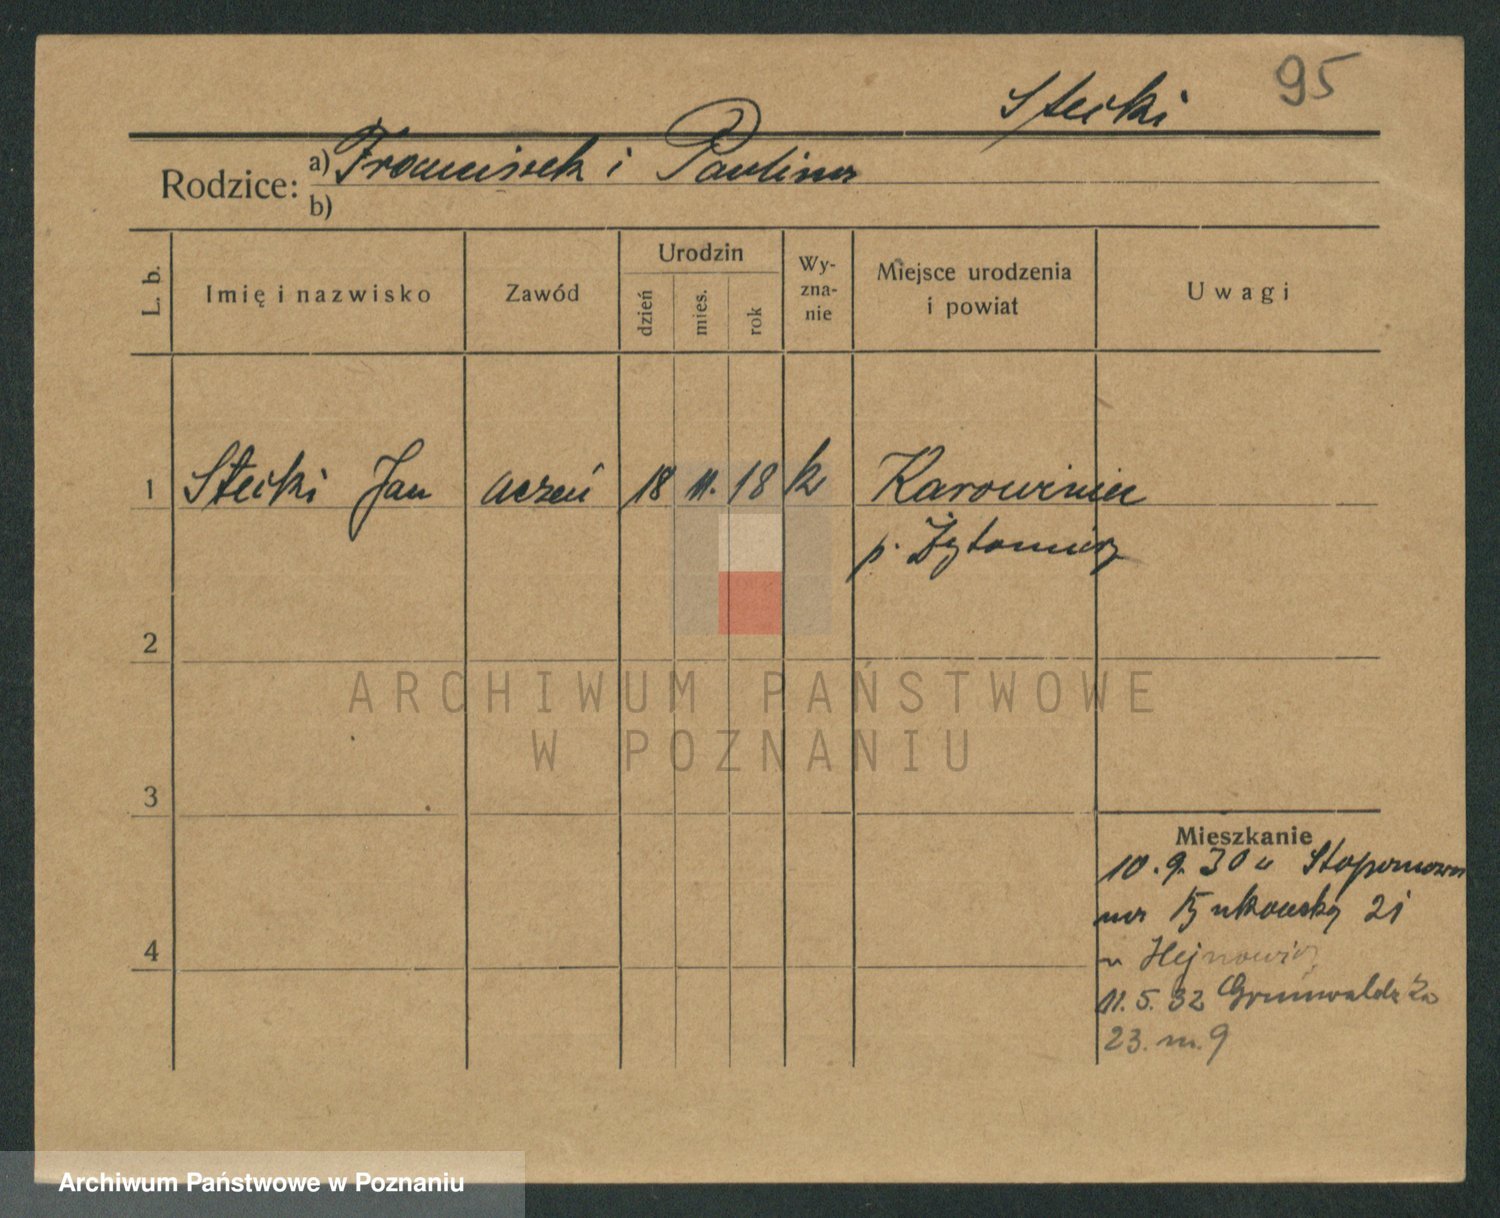 95
Stecki
Rodzice: a) Franciszek i Paulina
b)
L. b. Imię i nazwisko Zawód Urodzin dzień mies. rok Wy-zna-nie Miejsce urodzenia i powiat Uwagi
1 Stecki Jan uczeń 18 11. 18 k Karowiniec
p. Żytomierz
2
ARCHIWUM PAŃSTWOWE
W POZNANIU
3
Mieszkanie
10.9.30 u
21
4
u Hejnowicz
11.5.32 Grunwaldzka
23. m. 9
Archiwum Państwowe w Poznaniu